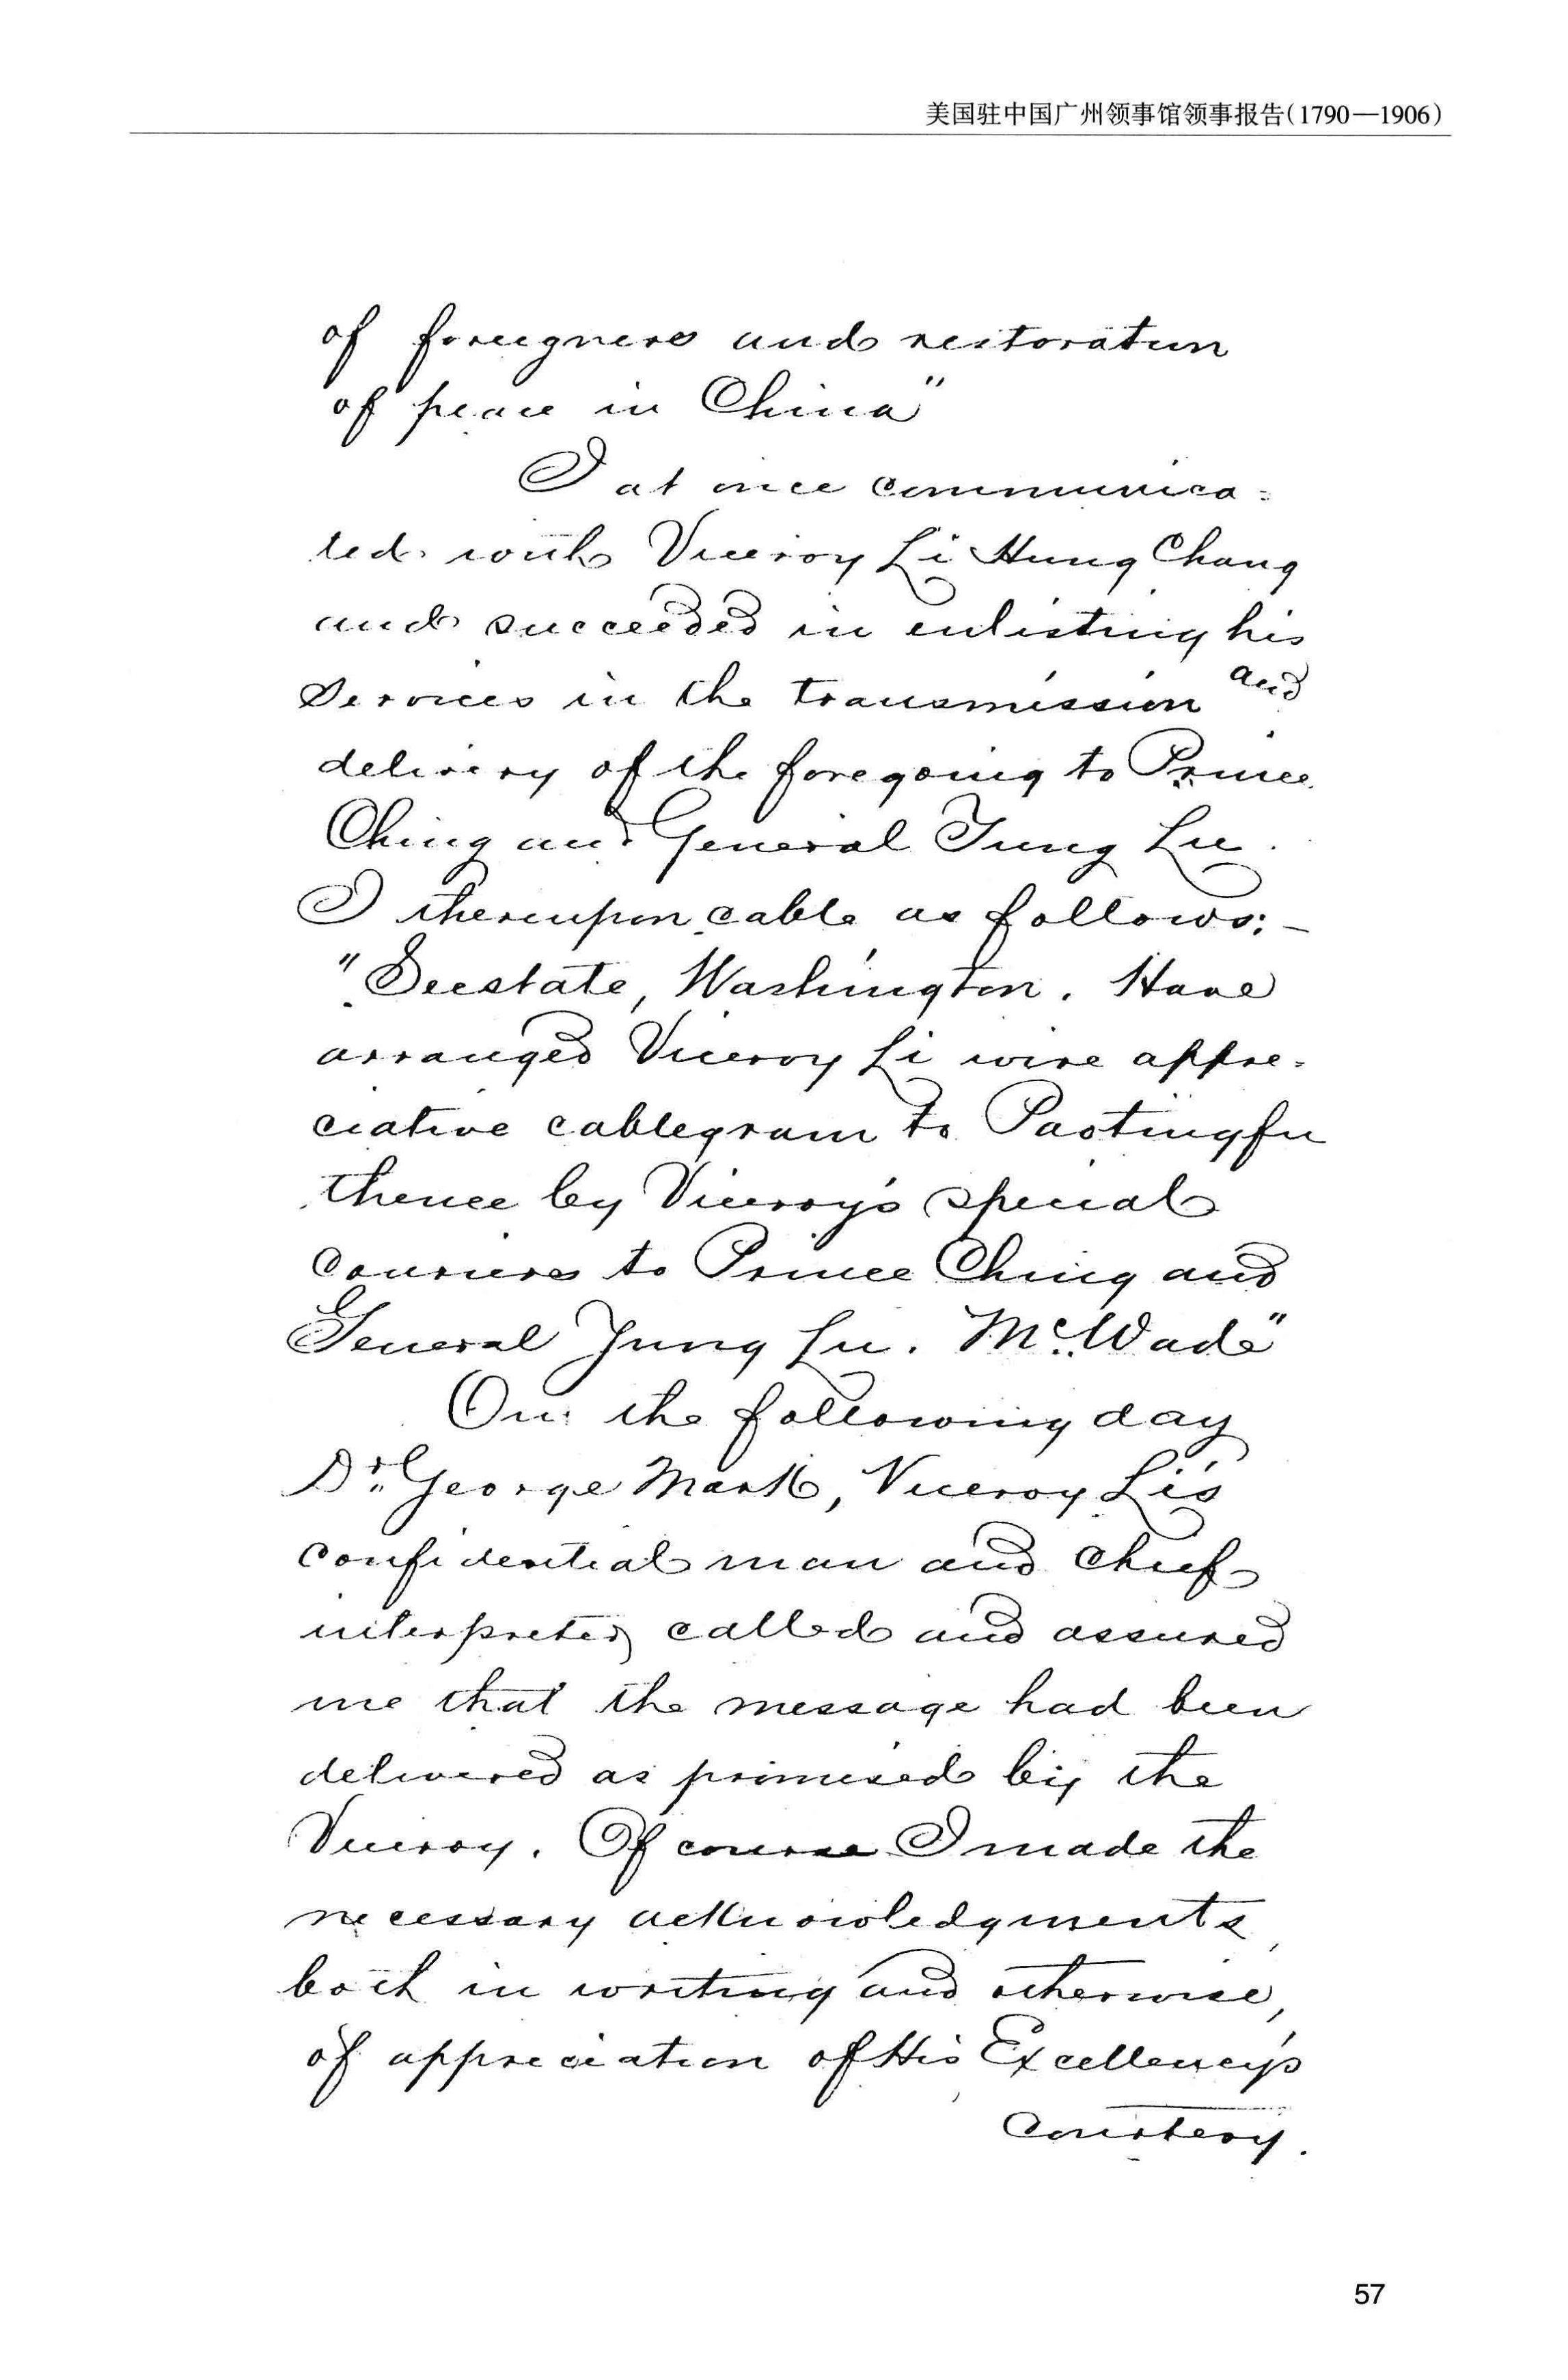 美国驻中国广州领事馆领事报告(1790—1906)
of foreigners and restoration
of peace in China"
I at once communica=
ted with Viceroy Li Hung Chang
and succeeded in enlisting his
services in the transmission and
delivery of the foregoing to Prince
Ching and General Jung Lu.
I thereupon cable as follows:—
"Secstate, Washington. Have
arranged Viceroy Li wire appre=
ciative cablegram to Paotingfu
thence by Viceroy's special
couriers to Prince Ching and
General Jung Lu. McWade"
On the following day
Dr. George Mark, Viceroy Li's
confidential man and chief
interpreter, called and assured
me that the message had been
delivered as promised by the
Viceroy. Of course I made the
necessary acknowledgments,
both in writing and otherwise,
of appreciation of His Excellency's
courtesy.
57